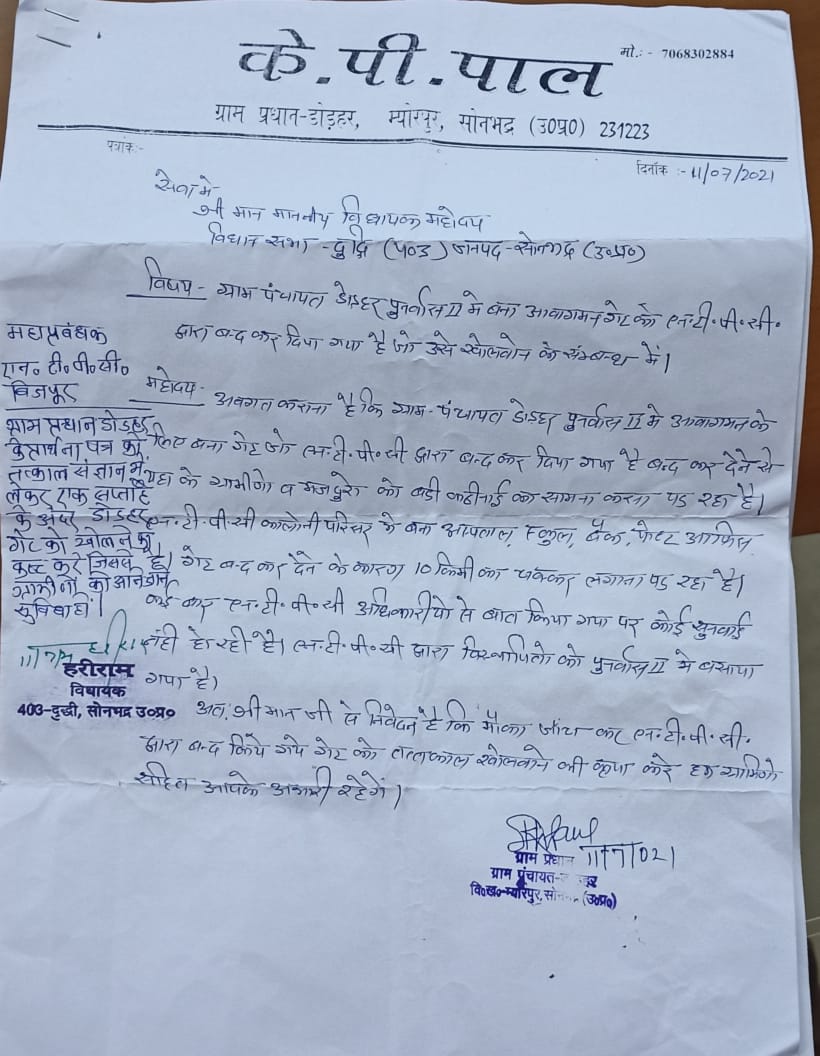 के.पी.पाल
मो.:- 7068302884
ग्राम प्रधान-डोड़हर, म्योरपुर, सोनभद्र (उ0प्र0) 231223
पत्रांक:-
दिनाँक :- 11/07/2021
सेवा मे
श्री मान माननीय विधायक महोदय
विधान सभा - दुद्धि (403) जनपद-सोनभद्र (उ०प्र०)
विषय - ग्राम पंचायत डोड़हर पुनर्वास II मे बना आवागमन गेट को एन.टी.पी.सी.
द्वारा बन्द कर दिया गया है जो उसे खोलवाने के सम्बन्ध में।
महोदय - अवगत कराना है कि ग्राम-पंचायत डोड़हर पुनर्वास II मे आवागमन के
लिए बना गेट जो एन.टी.पी.सी द्वारा बन्द कर दिया गया है बन्द कर देने से
यहा के ग्रामीणो व मजदुरो को बडी कठीनाई का सामना करना पड रहा है।
एन.टी.पी.सी कालोनी परिसर मे बना अस्पताल, स्कुल, बैंक, पोस्ट आफिस
है। गेट बन्द कर देने के कारण 10 किमी का चक्कर लगाना पड रहा है।
कई बार एन.टी.पी.सी अधिकारीयो से बात किया गया पर कोई सुनवाई
नही हो रही है। एन.टी.पी.सी द्वारा विस्थापितो को पुनर्वास II मे बसाया
गया है।
अतः श्री मान जी से निवेदन है कि मौका जाँच कर एन.टी.पी.सी.
द्वारा बन्द किये गये गेट को तत्काल खोलवाने की कृपा करे हम ग्रामिणो
सहित आपके अभारी रहेगें।
महाप्रबंधक
एन. टी. पी. सी.
बिजपुर
ग्राम प्रधान डोडहर
के प्रार्थना पत्र को
तत्काल संज्ञान में
लेकर एक सप्ताह
के अंदर डोडहर
गेट को खोलने का
कष्ट करें जिससे
ग्रामीनों को आने जाने
सुविधा हो।
हरीराम
विधायक
403-दुद्धी, सोनभद्र उ०प्र०
11/7/021
ग्राम प्रधान
ग्राम पंचायत-
वि०ख०-म्योरपुर, (उ०प्र०)